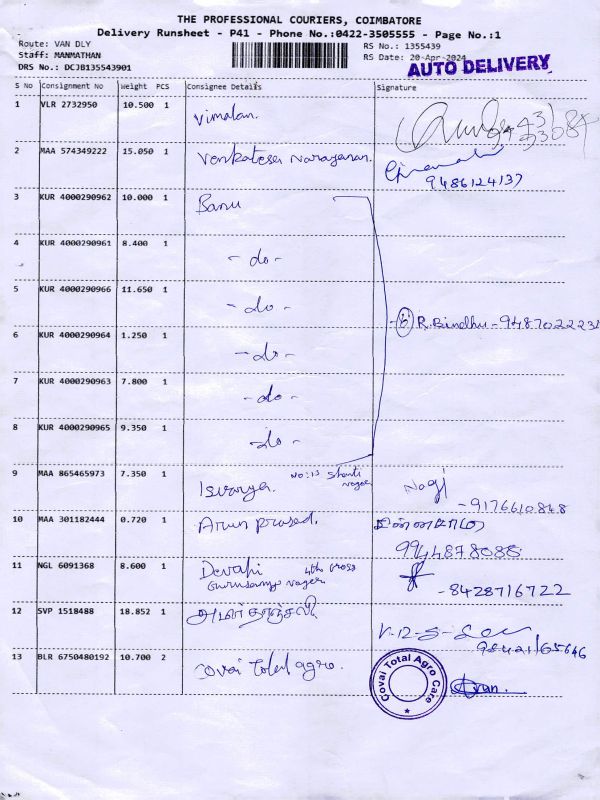 THE PROFESSIONAL COURIERS, COIMBATORE
Delivery Runsheet - P41 - Phone No.:0422-3505555 - Page No.:1
Route: VAN DLY
Staff: MANMATHAN
DRS No.: DCJB135543901
RS No.: 1355439
RS Date: 20-Apr-2024
AUTO DELIVERY
S No Consignment No Weight PCS Consignee Details Signature
1 VLR 2732950 10.500 1 Vimalan.
2 MAA 574349222 15.050 1 Venkatesa Narayanan.
9486124137
3 KUR 4000290962 10.000 1 Banu
4 KUR 4000290961 8.400 1 - do -
5 KUR 4000290966 11.650 1 - do -
6 R.Bindhu - 9487022231
6 KUR 4000290964 1.250 1 - do -
7 KUR 4000290963 7.800 1 - do -
8 KUR 4000290965 9.350 1 - do -
9 MAA 865465973 7.350 1 Iswarya. No: 13 Shanti Nagar Nagi
- 9176610848
10 MAA 301182444 0.720 1 Arun prasad.
9944878088
11 NGL 6091368 8.600 1 Devaki 4th cross
Gurusamy nager
- 8428716722
12 SVP 1518488 18.852 1
13 BLR 6750480192 10.700 2 Covai Total agro.
Covai Total Agro Care